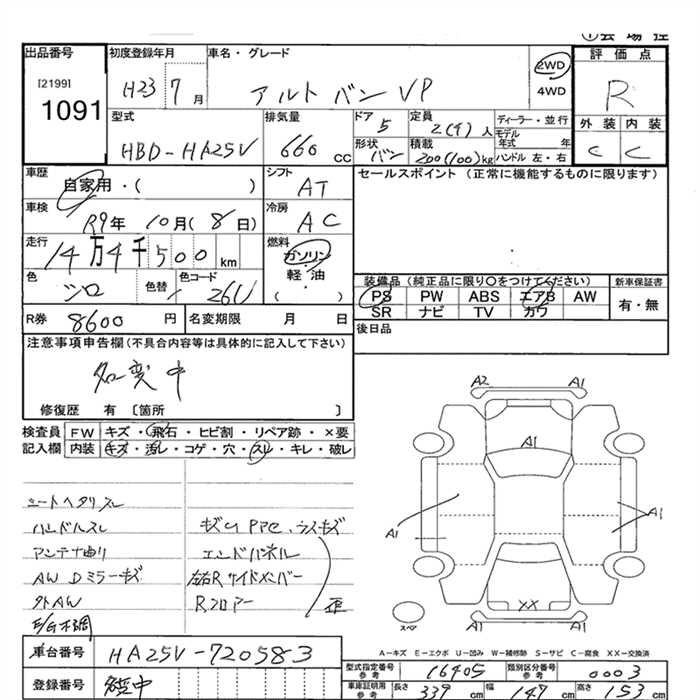 出品番号 [2199] 1091
初度登録年月 H23 7月
車名・グレード アルト バン VP
2WD 4WD
評価点 R
外装 C 内装 C
型式 HBD-HA25V
排気量 660 CC
ドア 5
形状 バン
定員 2(4)人
積載 200(100)kg
ディーラー・並行
モデル年式 年
ハンドル 左・右
車歴 自家用・( )
シフト AT
セールスポイント (正常に機能するものに限ります)
車検 R9年 10月(8日)
冷房 AC
走行 14万4千500km
燃料 ガソリン 軽・油 ( )
色 シロ 色替 / 色コード 26U
装備品 (純正品に限り〇をつけてください) 新車保証書
PS PW ABS エアB AW 有・無
SR ナビ TV カワ
R券 8600 円 名変期限 月 日
後日品
注意事項申告欄(不具合内容等は具体的に記入して下さい)
名変中
修復歴 有 [箇所 ]
検査員 FW キズ・飛石・ヒビ割・リペア跡・×要
記入欄 内装 キズ・汚レ・コゲ・穴・スレ・キレ・破レ
A2 A1
A1
A1 A1
XX
スペア
シートヘタリスレ
ハンドルスレ
アンテナ曲り
AW Dミラーキズ
外AW
E/G不調
エンドパネル
左右Rサイドメンバー
Rフロアー 歪
A－キズ E－エクボ U－凹み W－補修跡 S－サビ C－腐食 XX－交換済
車台番号 HA25V-720583
型式指定番号 参考 16405 類別区分番号 参考 0003
登録番号
車庫証明用 参考 長さ 339 cm 幅 147 cm 高さ 153 cm